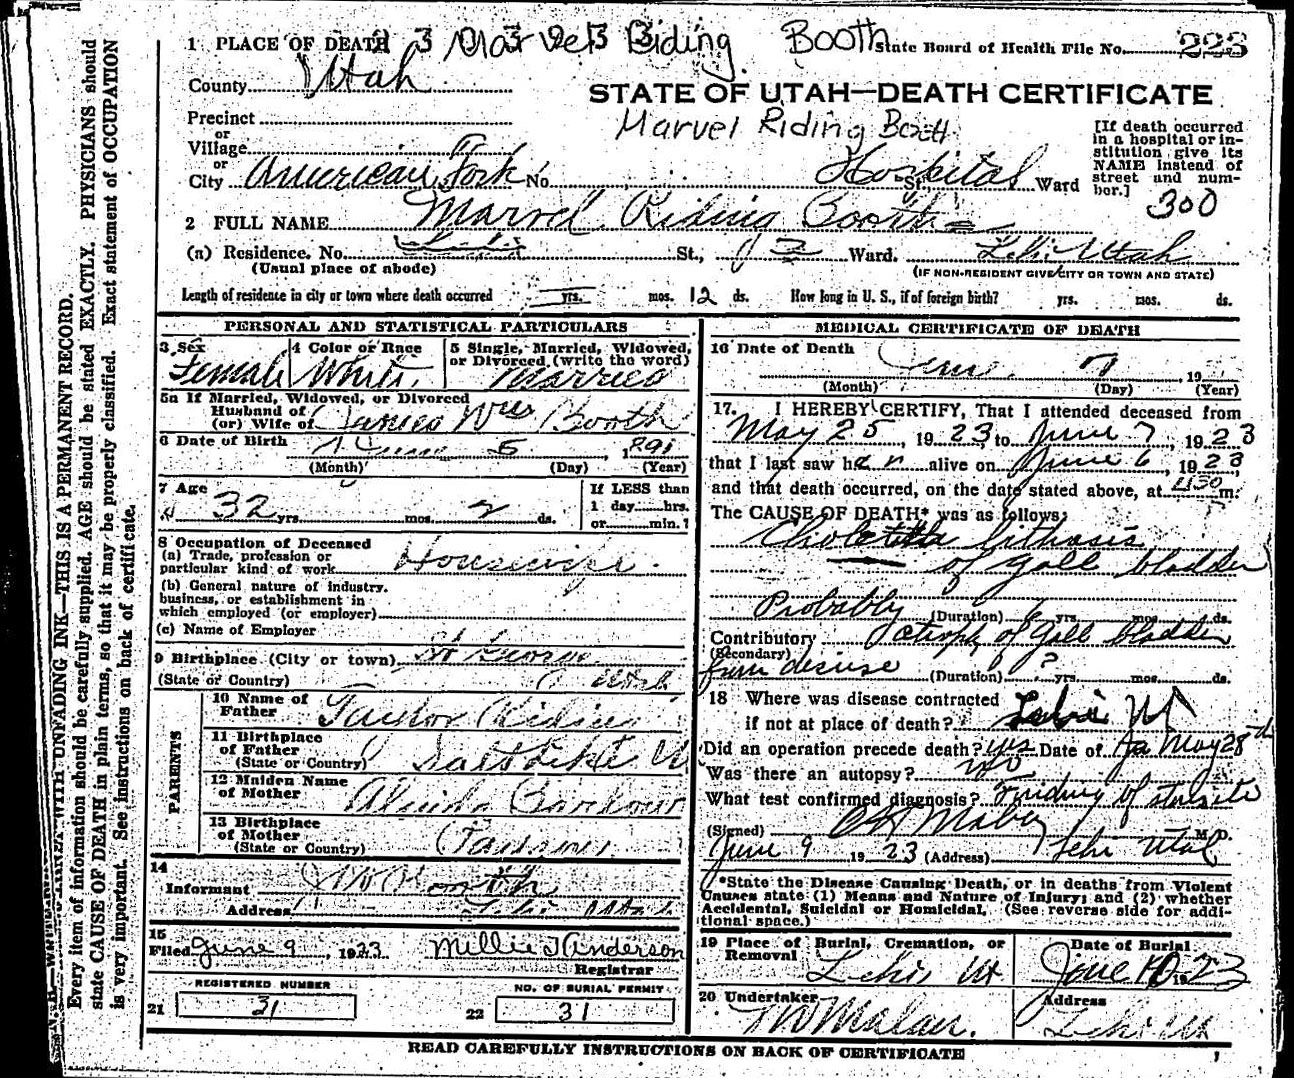 1 PLACE OF DEATH Marvel Riding Booth State Board of Health File No. 223
County Utah
STATE OF UTAH—DEATH CERTIFICATE
Precinct
Marvel Riding Booth
or
Village
or
City American Fork No. Hospital St., Ward
[If death occurred
in a hospital or in-
stitution give its
NAME instead of
street and num-
ber.]
300
2 FULL NAME Marvel Riding Booth
(a) Residence. No. St., Ward. Lehi Utah
(Usual place of abode)
(IF NON-RESIDENT GIVE CITY OR TOWN AND STATE)
Length of residence in city or town where death occurred yrs. mos. 12 ds. How long in U. S., if of foreign birth? yrs. mos. ds.
PERSONAL AND STATISTICAL PARTICULARS
3 Sex
Female
4 Color or Race
White
5 Single, Married, Widowed,
or Divorced (write the word)
Married
5a If Married, Widowed, or Divorced
Husband of
(or) Wife of James Wm Booth
6 Date of Birth June 5, 1891
(Month) (Day) (Year)
7 Age
32 yrs. mos. 2 ds.
If LESS than
1 day hrs.
or min.?
8 Occupation of Deceased
(a) Trade, profession or
particular kind of work Housewife.
(b) General nature of industry,
business, or establishment in
which employed (or employer)
(c) Name of Employer
9 Birthplace (City or town) St George
(State or Country) Utah
PARENTS
10 Name of
Father Taylor Riding
11 Birthplace
of Father
(State or Country) Salt Lake U
12 Maiden Name
of Mother
13 Birthplace
of Mother
(State or Country)
14
Informant Booth
Address Lehi Utah
15
Filed June 9, 1923 Millie J Anderson
Registrar
REGISTERED NUMBER
21 31
NO. OF BURIAL PERMIT
22 31
MEDICAL CERTIFICATE OF DEATH
16 Date of Death June 7, 19
(Month) (Day) (Year)
17. I HEREBY CERTIFY, That I attended deceased from
May 25, 1923, to June 7, 1923
that I last saw her alive on June 6, 1923
and that death occurred, on the date stated above, at m.
The CAUSE OF DEATH* was as follows:
lithasis
of Gall bladder
Probably (Duration) 6 yrs. mos. ds.
Contributory atrophy of Gall bladder
(Secondary)
from disease (Duration) ? yrs. mos. ds.
18 Where was disease contracted
if not at place of death? Lehi Ut
Did an operation precede death? yes Date of May 28th
Was there an autopsy? no
What test confirmed diagnosis? Finding of
(Signed) M.D.
June 9 1923 (Address) Lehi Utah
*State the Disease Causing Death, or in deaths from Violent
Causes state (1) Means and Nature of Injury; and (2) whether
Accidental, Suicidal or Homicidal. (See reverse side for addi-
tional space.)
19 Place of Burial, Cremation, or
Removal
Lehi Ut
Date of Burial
June 10 1923
20 Undertaker
Address
Lehi Ut
READ CAREFULLY INSTRUCTIONS ON BACK OF CERTIFICATE
WITH UNFADING INK—THIS IS A PERMANENT RECORD.
Every item of information should be carefully supplied. AGE should be stated EXACTLY. PHYSICIANS should
state CAUSE OF DEATH in plain terms, so that it may be properly classified. Exact statement of OCCUPATION
is very important. See instructions on back of certificate.